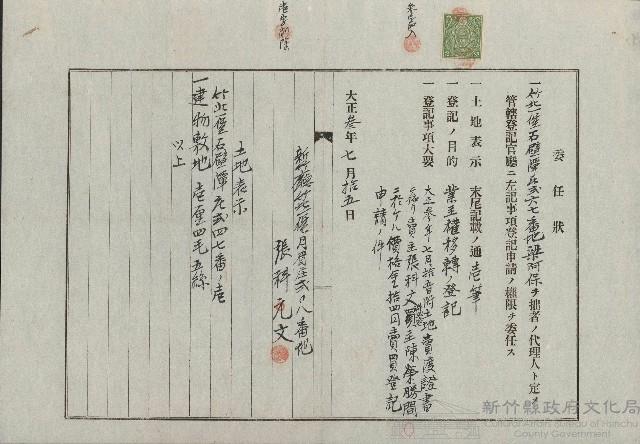 委任狀
一竹北一堡石壁潭庄弍六七番地梁阿保ヲ拙者ノ代理人ト定メ
管轄登記官廳ニ左記事項登記申請ノ權限ヲ委任ス
一土地表示 末尾記載ノ通壱筆
一登記ノ目的 業主權移轉ノ登記
一登記事項大要 大正參年七月拾五日附土地賣渡證書
ニ依リ賣主張科文買主陳榮勝間
ニ於ケル價格金拾四円賣買登記
申請ノ件
大正參年七月拾五日
新竹廳竹北一堡月眉庄弍〇八番地
張科元文
土地表示
竹北一堡石壁潭庄弍四七番ノ壱
一建物敷地 壱厘四毛五絲
以上
新竹縣政府文化局
Cultural Affairs Bureau of Hsinchu
County Government